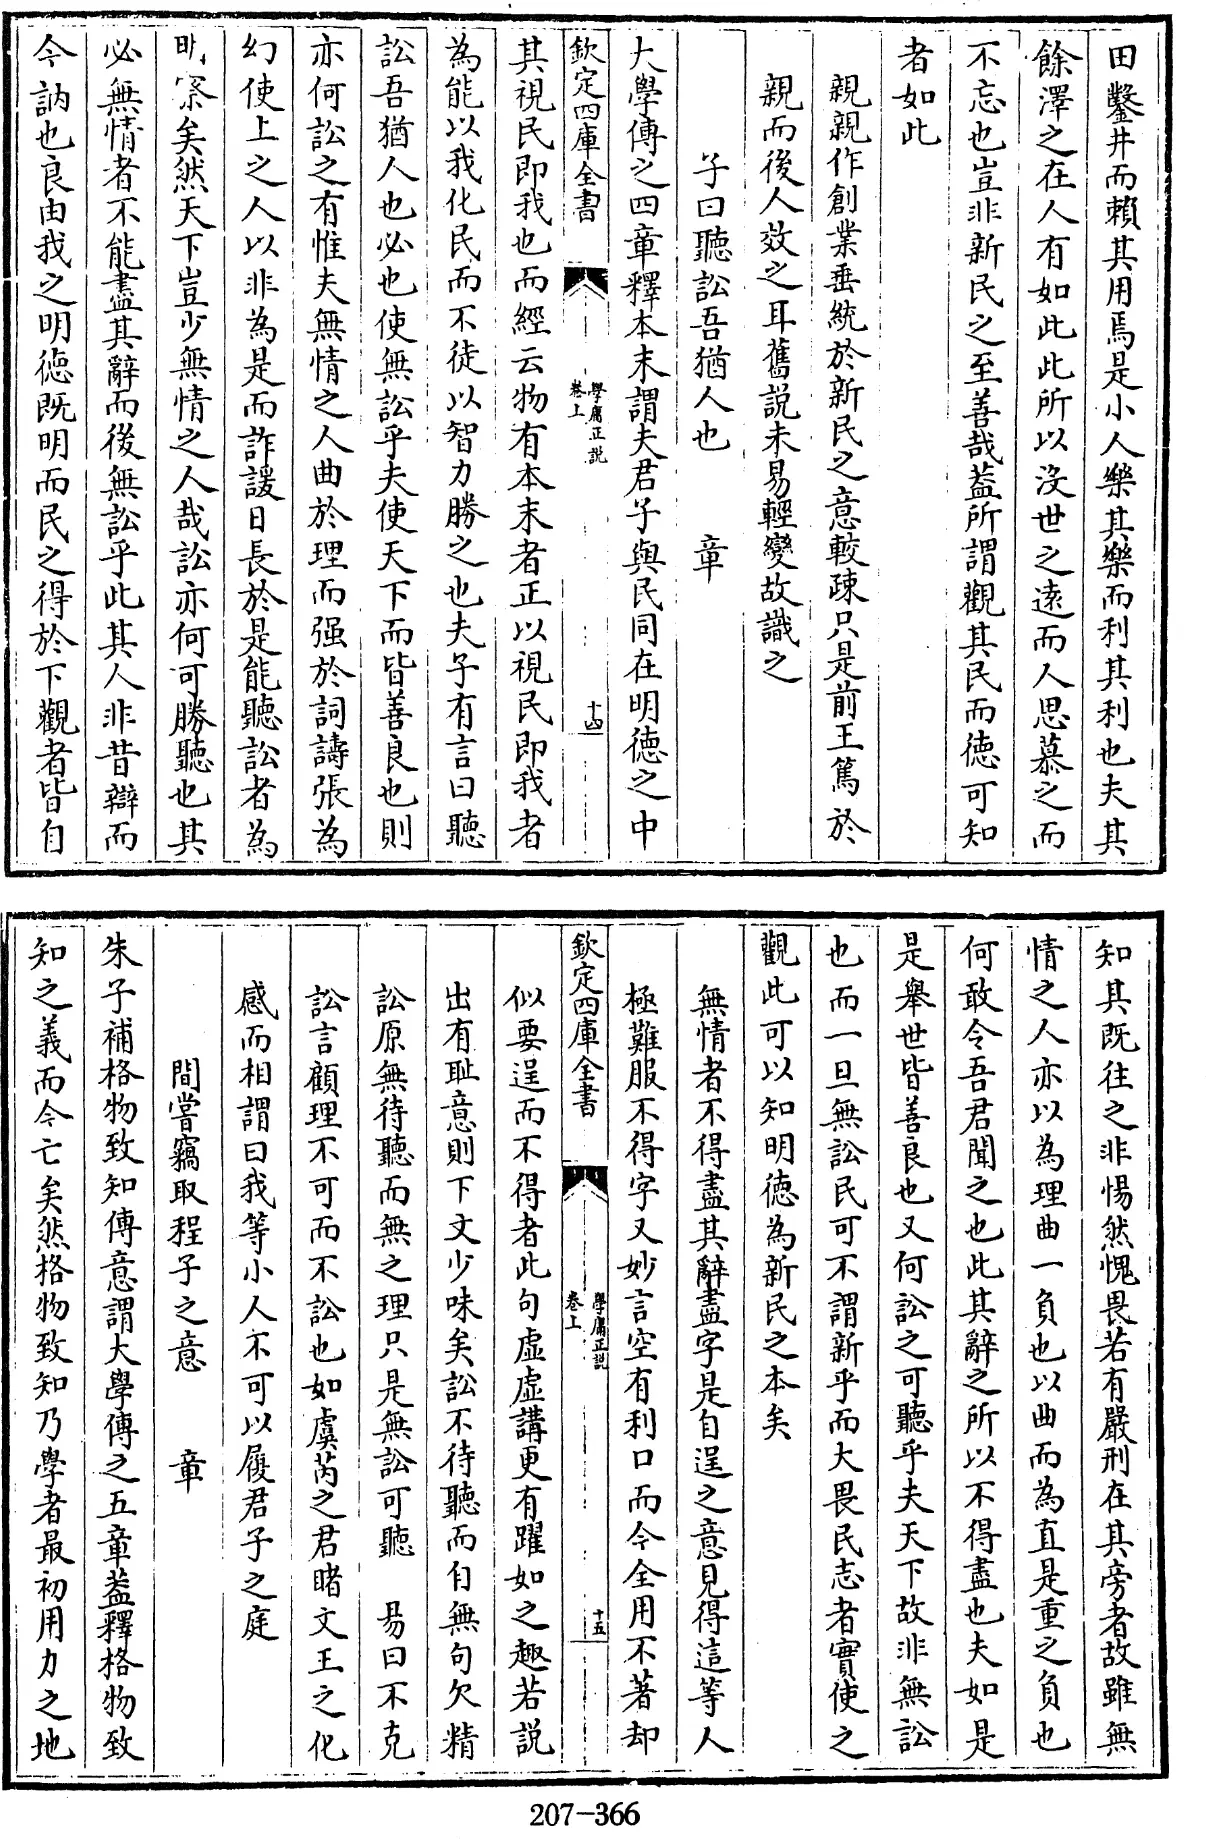 田鑿井而賴其用焉是小人樂其樂而利其利也夫其
餘澤之在人有如此此所以沒世之遠而人思慕之而
不忘也豈非新民之至善哉葢所謂觀其民而德可知
者如此
親親作創業垂統於新民之意較疎只是前王篤於
親而後人效之耳舊説未易輕變故識之
子曰聽訟吾猶人也 章
大學傳之四章釋本末謂夫君子與民同在明德之中
欽定四庫全書
學庸正説
卷上
十四
其視民即我也而經云物有本末者正以視民即我者
為能以我化民而不徒以智力勝之也夫子有言曰聽
訟吾猶人也必也使無訟乎夫使天下而皆善良也則
亦何訟之有惟夫無情之人曲於理而强於詞譸張為
幻使上之人以非為是而詐諼日長於是能聽訟者為
明察矣然天下豈少無情之人哉訟亦何可勝聽也其
必無情者不能盡其辭而後無訟乎此其人非昔辯而
今訥也良由我之明德既明而民之得於下觀者皆自
知其既往之非惕然愧畏若有嚴刑在其旁者故雖無
情之人亦以為理曲一負也以曲而為直是重之負也
何敢令吾君聞之也此其辭之所以不得盡也夫如是
是舉世皆善良也又何訟之可聽乎夫天下故非無訟
也而一旦無訟民可不謂新乎而大畏民志者實使之
觀此可以知明德為新民之本矣
無情者不得盡其辭盡字是自逞之意見得這等人
極難服不得字又妙言空有利口而今全用不著却
欽定四庫全書
學庸正説
卷上
十五
似要逞而不得者此句虛虛講更有躍如之趣若説
出有耻意則下文少味矣訟不待聽而自無句欠精
訟原無待聽而無之理只是無訟可聽 易曰不克
訟言顧理不可而不訟也如虞芮之君睹文王之化
感而相謂曰我等小人不可以履君子之庭
間嘗竊取程子之意 章
朱子補格物致知傳意謂大學傳之五章葢釋格物致
知之義而今亡矣然格物致知乃學者最初用力之地
207-366